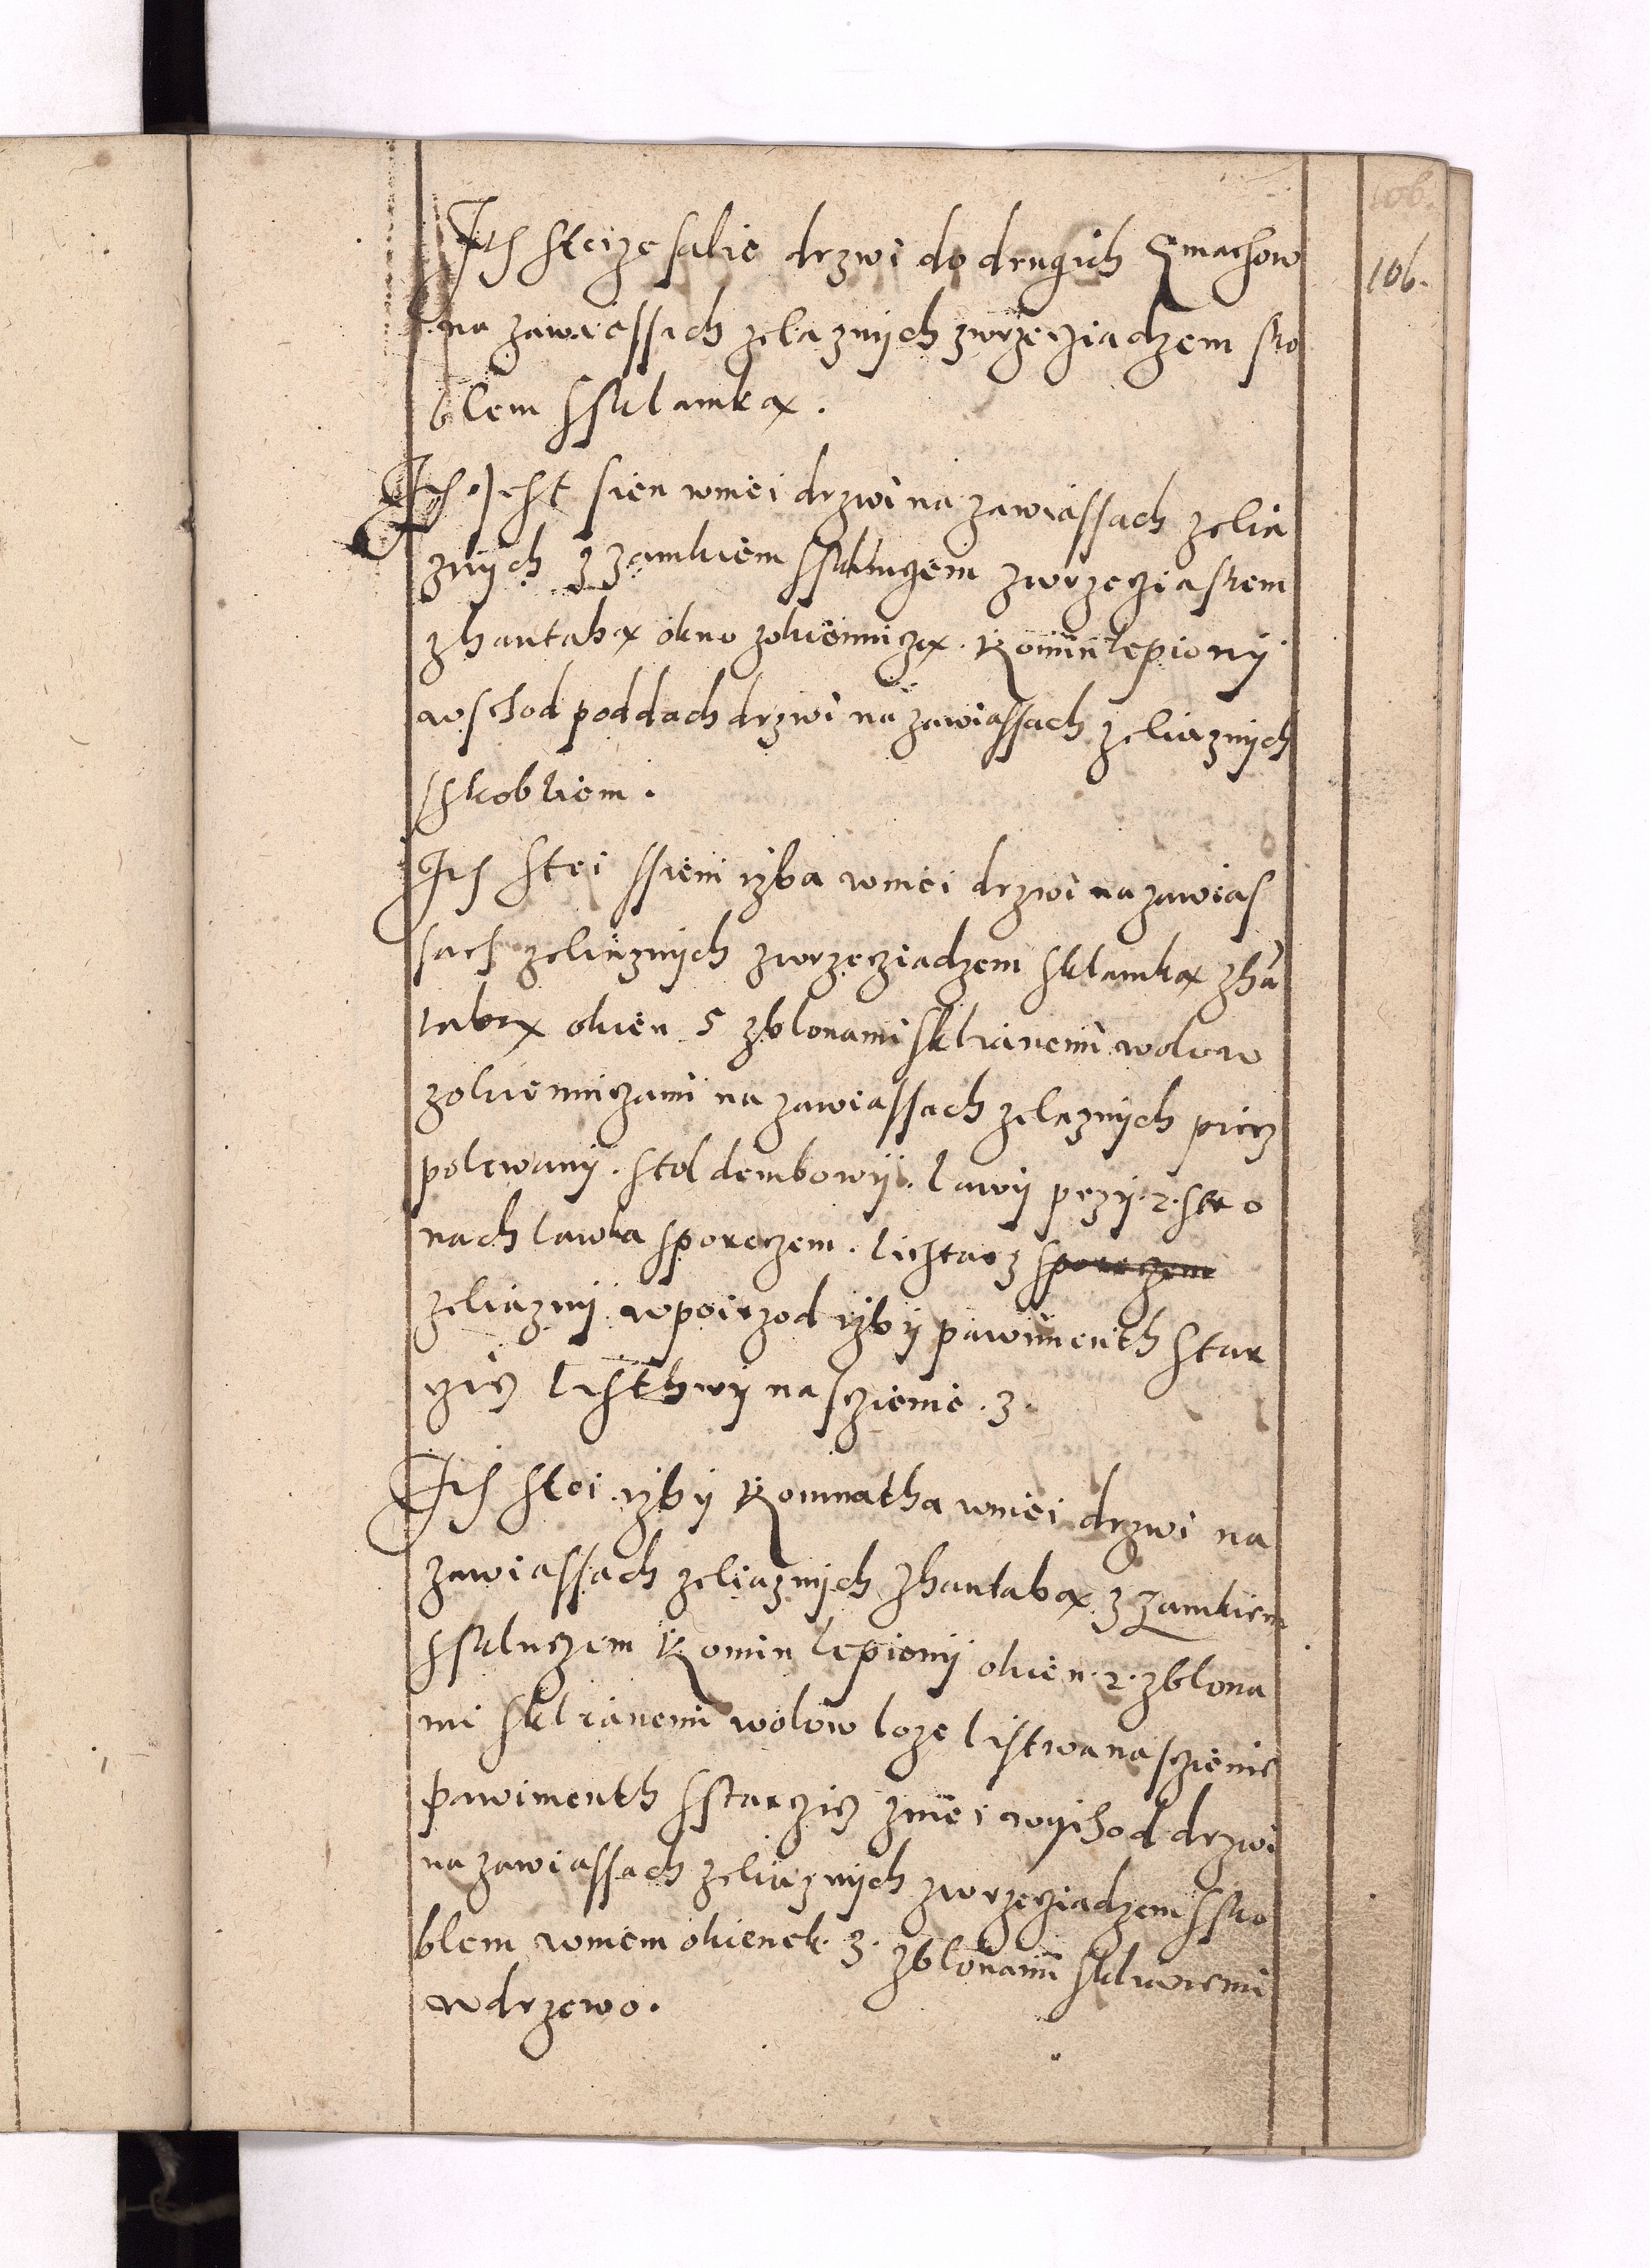 106.
106.
Its steize salie drzwi do drugich Gmachow
na zawiessach zelaznych zwrzecziadzem sko
blem sskłamką.
Its. Jest sien wniei drzwi na zawiassach zelia
znÿch z zamkiem sskluczem zwrzecziaskem
zhantabą okno zokienniczą. Komin lepionÿ
wschod poddach drzwi na zawiassach zeliaznych
sskobliem.
Its stei ssieni izba wniei drzwi na zawias
sach zeliaznych zwrzecziadzem sklamką zhā
tabą okien 5 zblonami sklianemi wolow
zokienniczami na zawiassach zelaznych piecz
polewanÿ. stol dembowÿ. lawÿ przÿ. 2. stro
nach lawka sporeczem. lichtarz sporeczem
zeliaznÿ wpoirzod izbÿ pawimenth star
czicz listhwÿ na sczienie. 3.
Its stei izbÿ Komnatha wniei drzwi na
zawiassach zeliaznych zhantabą z zamkiem
sskluczem Komin lepionÿ okien. 2. zblona
mi sklianemi wolow loze listwa na sczienie
pawimenth sstarczicz zniei wÿchod drzwi
na zawiassach zeliaznych zwrzecziadzem ssko
blem wniem okienek. 3. zblonami sklianemi
wdrzewo.